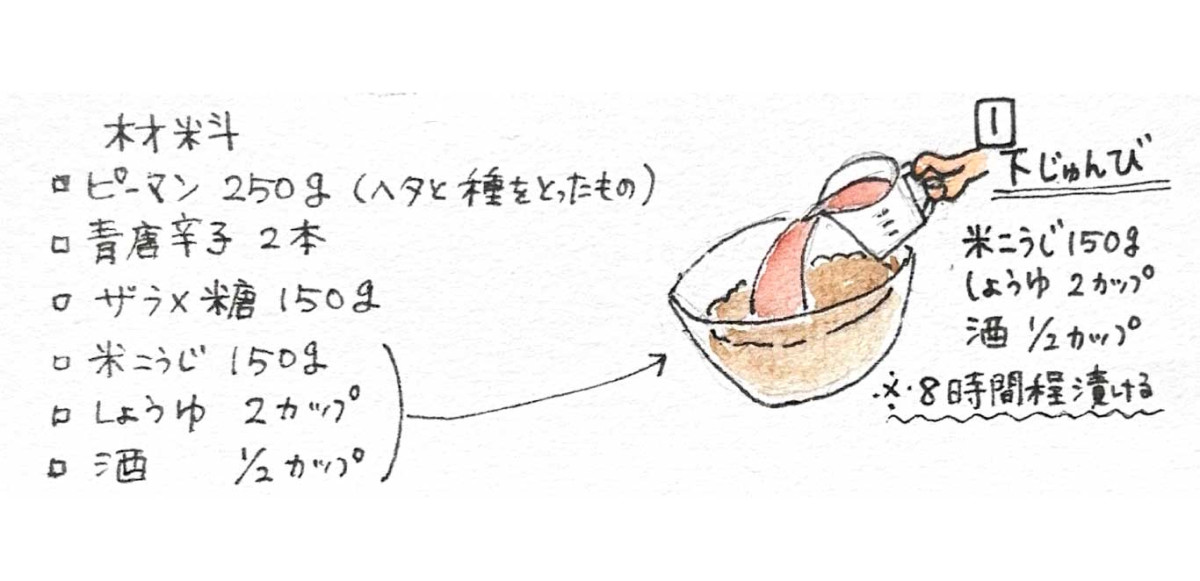 材料
ピーマン 250g (ヘタと種をとったもの)
青唐辛子 2本
ザラメ糖 150g
米こうじ 150g
しょうゆ 2カップ
酒 1/2カップ
1
下じゅんび
米こうじ150g
しょうゆ 2カップ
酒 1/2カップ
※・8時間程漬ける